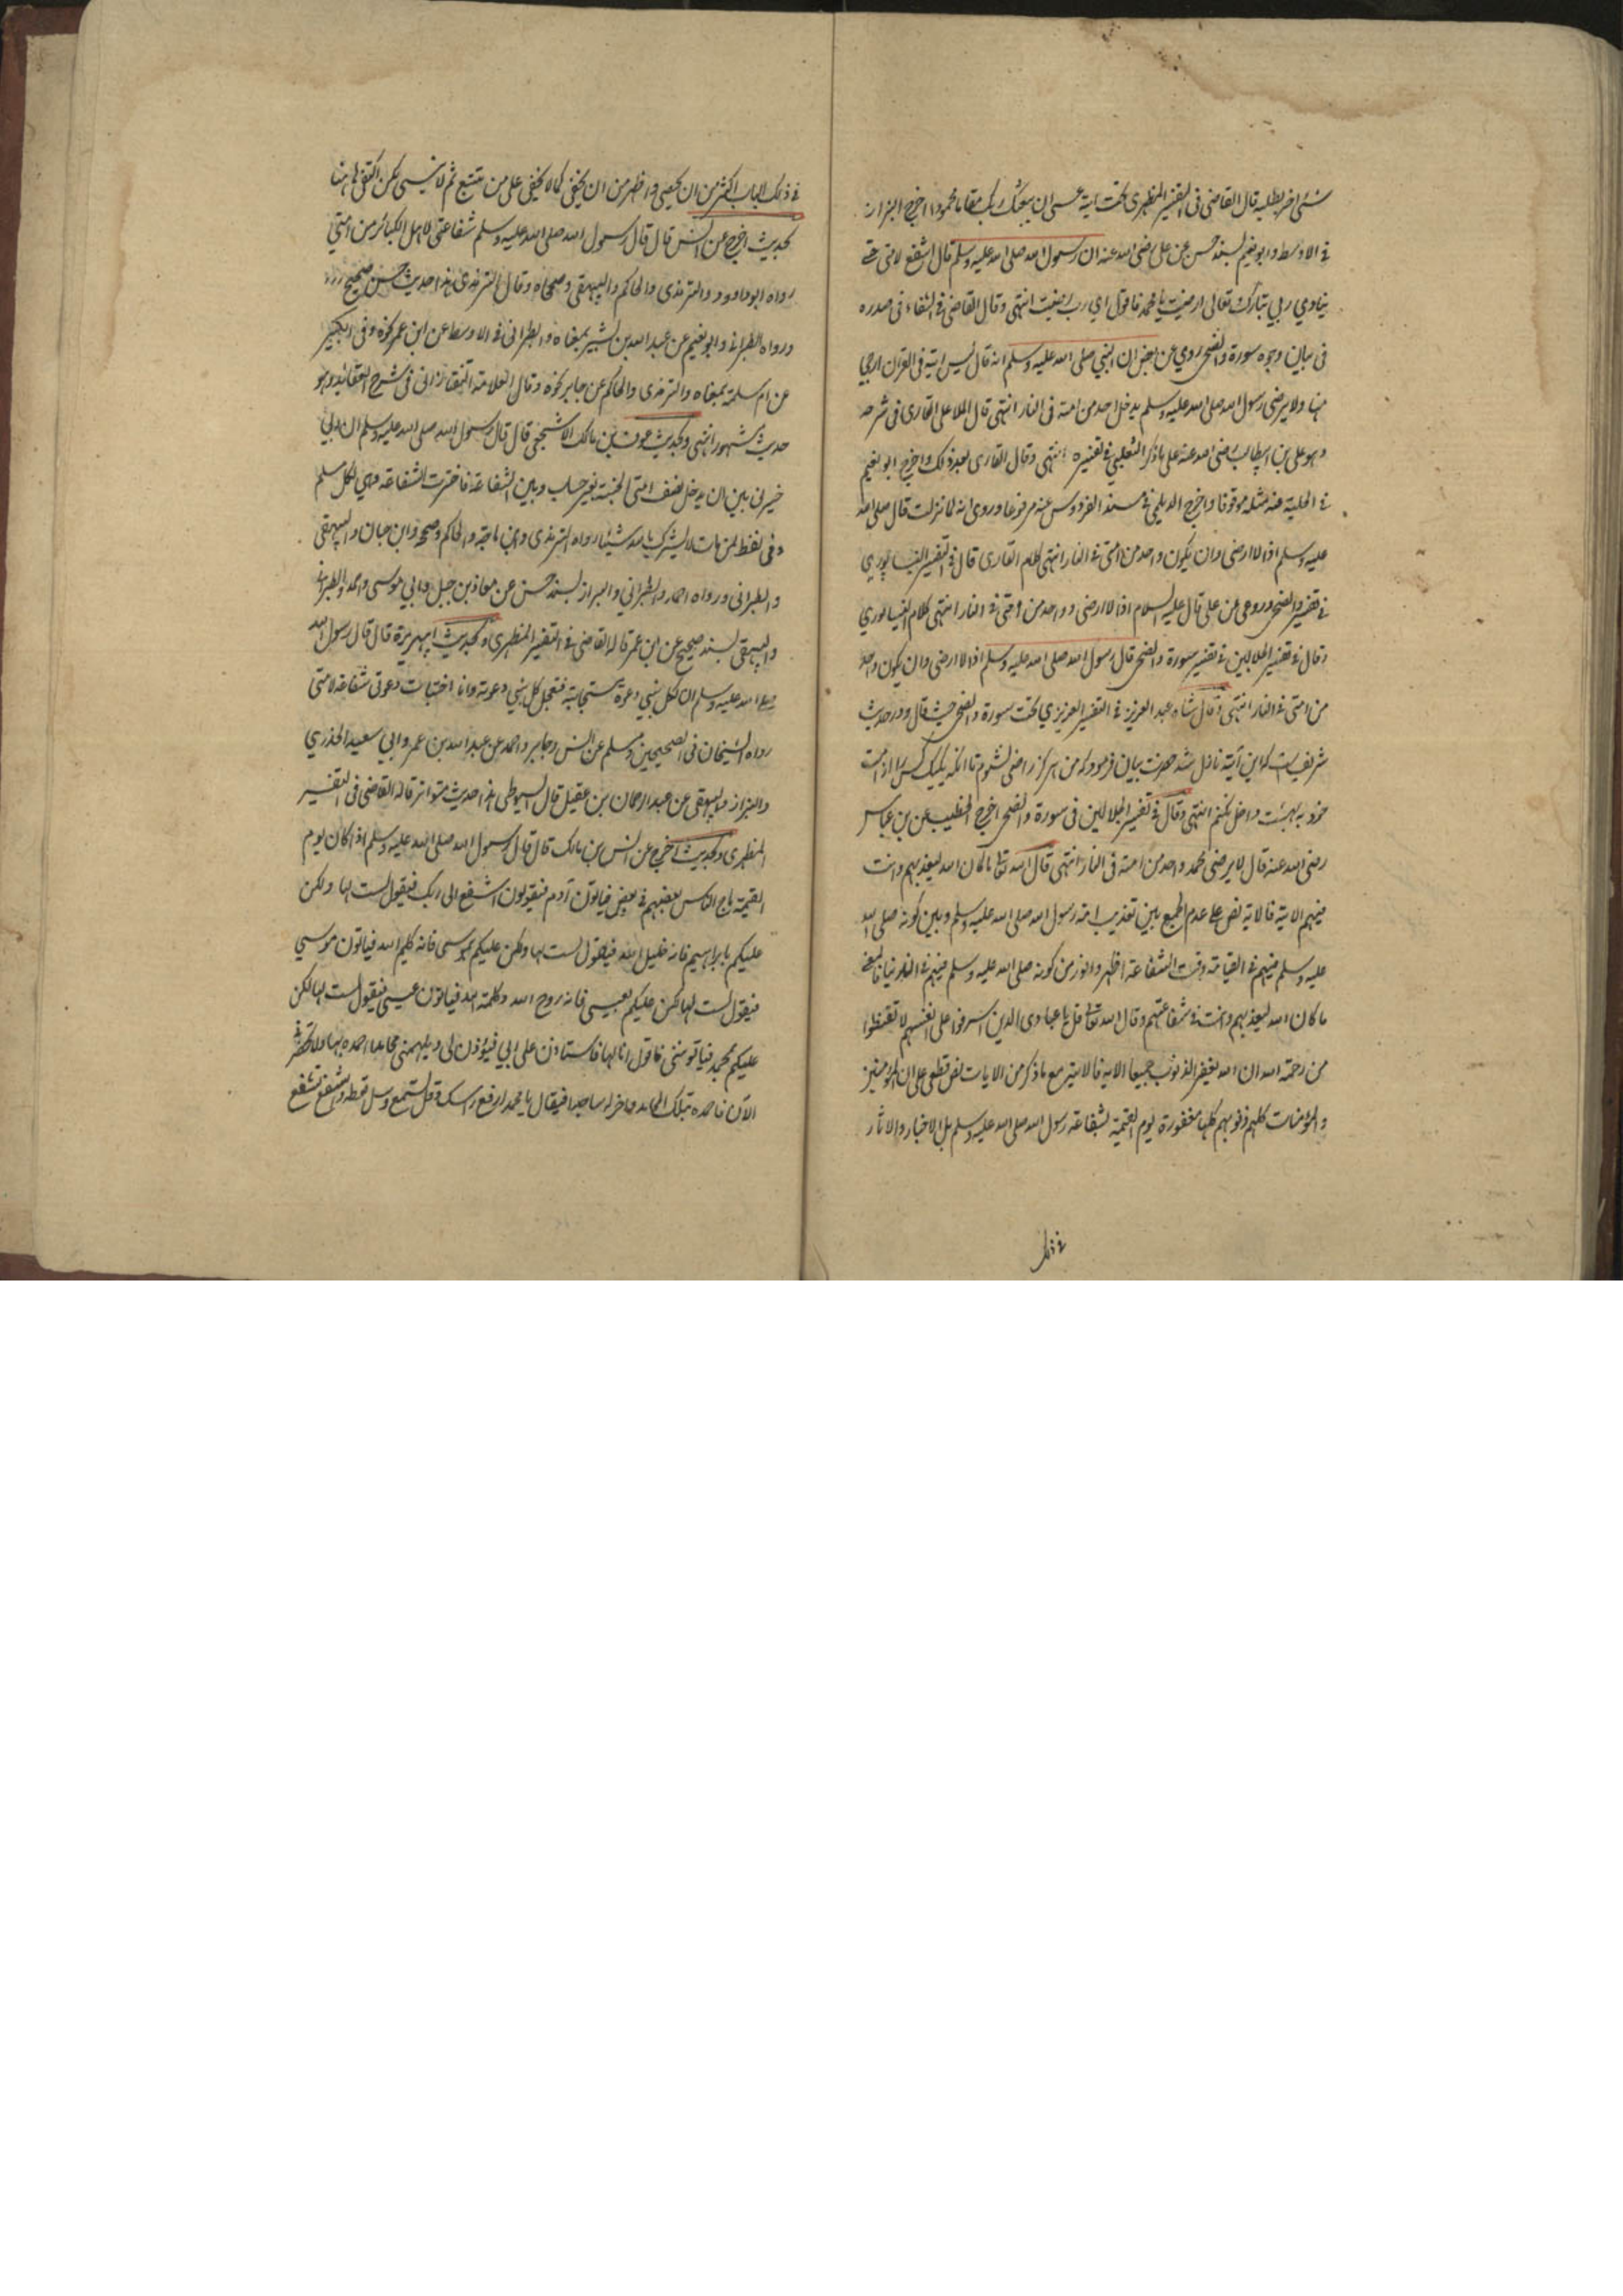 شئ اخر بطلبه قال القاضى فى التفسير المظهرى تحت اية عسى ان يبعثك ربك مقاما محمودا اخرج البزار
فى الاوسط وابو نعيم بسند حسن عن على رضى الله عنه ان رسول الله صلى الله عليه وسلم قال اشفع لامتى حتى
ينادي ربي تبارك وتعالى ارضيت يا محمد فاقول اي رب رضيت انتهى وقال القاضى فى الشفاء فى صدره
فى بيان وجوه سورة والضحى روي عن بعض ان النبي صلى الله عليه وسلم انه قال ليس اية فى القران ارجى
منها ولا يرضى رسول الله صلى الله عليه وسلم يدخل احد من امته فى النار انتهى قال الملا على القارى فى شرحه
وهو على بن ابيطالب رضى الله عنه على ما ذكر الثعلبي فى تفسيره انتهى وقال القارى بعد ذلك واخرج ابو نعيم
فى الحلية عنه مثله موقوفا واخرج الديلمي فى مسند الفردوس عنه مرفوعا وروى انه لما نزلت قال صلى الله
عليه وسلم اذا لا ارضى وان يكون واحد من امتى فى النار انتهى كلام القارى قال فى التفسير النيسابوري
فى تفسير والضحى وروى عن على قال عليه السلام اذا لا ارضى وواحد من امتى فى النار انتهى كلام النيسابوري
وقال فى تفسير الجلالين فى تفسير سورة والضحى قال رسول الله صلى الله عليه وسلم اذا لا ارضى وان يكون واحد
من امتى فى النار انتهى وقال شاه عبد العزيز فى التفسير العزيزي تحت سورة والضحى حيث قال ودر حديث
شريف است كه اين آية نازل شد حضرت بيان فرمود كه من هرگز راضى نشوم تا انكه يك يك كس را از امت
خود به بهشت داخل نكنم انتهى وقال فى تفسير الجلالين فى سورة والضحى اخرج الخطيب عن بن عباس
رضى الله عنه قال لا يرضى محمد واحد من امته فى النار انتهى قال الله تعالى ما كان الله ليعذبهم وانت
فيهم الاية فالاية نص على عدم الجمع بين تعذيب امة رسول الله صلى الله عليه وسلم وبين كونه صلى الله
عليه وسلم فيهم فى القيامة وقت الشفاعة اظهر وانور من كونه صلى الله عليه وسلم فيهم فى الدنيا فالمعنى
ما كان الله ليعذبهم وانت فى شفاعتهم وقال الله تعالى قل يا عبادى الذين اسرفوا على انفسهم لا تقنطوا
من رحمة الله ان الله يغفر الذنوب جميعا الاية فالاية مع ما ذكر من الايات نص قطعى على ان المؤمنين
والمؤمنات كلهم ذنوبهم كلها مغفورة يوم القيمة بشفاعة رسول الله صلى الله عليه وسلم بل الاخبار والاثار
فى ذلك
فى ذلك الباب اكثر من ان يحصى واظهر من ان يخفى كما لا يخفى على من تتبع ثم لا ينسى لكن اكتفى هاهنا
بحديث اخرج عن انس قال قال رسول الله صلى الله عليه وسلم شفاعتى لاهل الكبائر من امتي
رواه ابو داوود والترمذى والحاكم والبيهقى وصححاه وقال الترمذى هذا حديث حسن صحيح
ورواه الطبرانى وابو نعيم عن عبد الله بن بشير بمعناه والطبرانى فى الاوسط عن ابن عمر نحوه وفى الكبير
عن ام سلمة بمعناه والترمذى والحاكم عن جابر نحوه وقال العلامة التفتازانى فى شرح العقائد وهو
حديث مشهور انتهى وبحديث عوف بن مالك الاشجعى قال قال رسول الله صلى الله عليه وسلم ان ربي
خيرنى بين ان يدخل نصف امتى الجنة بغير حساب وبين الشفاعة فاخترت الشفاعة وهي لكل مسلم
وفى لفظ لمن مات لا يشرك بالله شيئا رواه الترمذى وابن ماجة والحاكم وصححه وابن حبان والبيهقى
والطبرانى ورواه احمد والطبراني والبزاز بسند حسن عن معاذ بن جبل وابي موسى واحمد والطبرانى
والبيهقى بسند صحيح عن ابن عمر قاله القاضى فى التفسير المظهرى وبحديث ابيهريرة قال قال رسول الله
صلى الله عليه وسلم ان لكل نبي دعوة مستجابة فتعجل كل نبي دعوته وانا اختبأت دعوتى شفاعة لامتى
رواه الشيخان فى الصحيحين ومسلم عن انس وجابر واحمد عن عبد الله بن عمرو وابي سعيد الخدري
والبزاز والبيهقى عن عبد الرحمان بن عقيل قال السيوطى هذا حديث متواتر قاله القاضى فى التفسير
المظهرى وبحديث اخرج عن انس بن مالك قال قال رسول الله صلى الله عليه وسلم اذا كان يوم
القيمة ماج الناس بعضهم فى بعض فياتون آدم فيقولون اشفع الى ربك فيقول لست لها ولكن
عليكم بابراهيم فانه خليل الله فيقول لست لها ولكن عليكم بموسى فانه كليم الله فياتون موسي
فيقول لست لها لكن عليكم بعيسى فانه روح الله وكلمته فياتون عيسى فيقول لست لها لكن
عليكم بمحمد فياتوننى فاقول انا لها فاستاذن على ربي فيؤذن لى ويلهمنى محامد احمده بها ولا تحضرنى
الآن فاحمده بتلك المحامد واخر له ساجدا فيقال يا محمد ارفع راسك وقل تسمع وسل تعطه واشفع تشفع